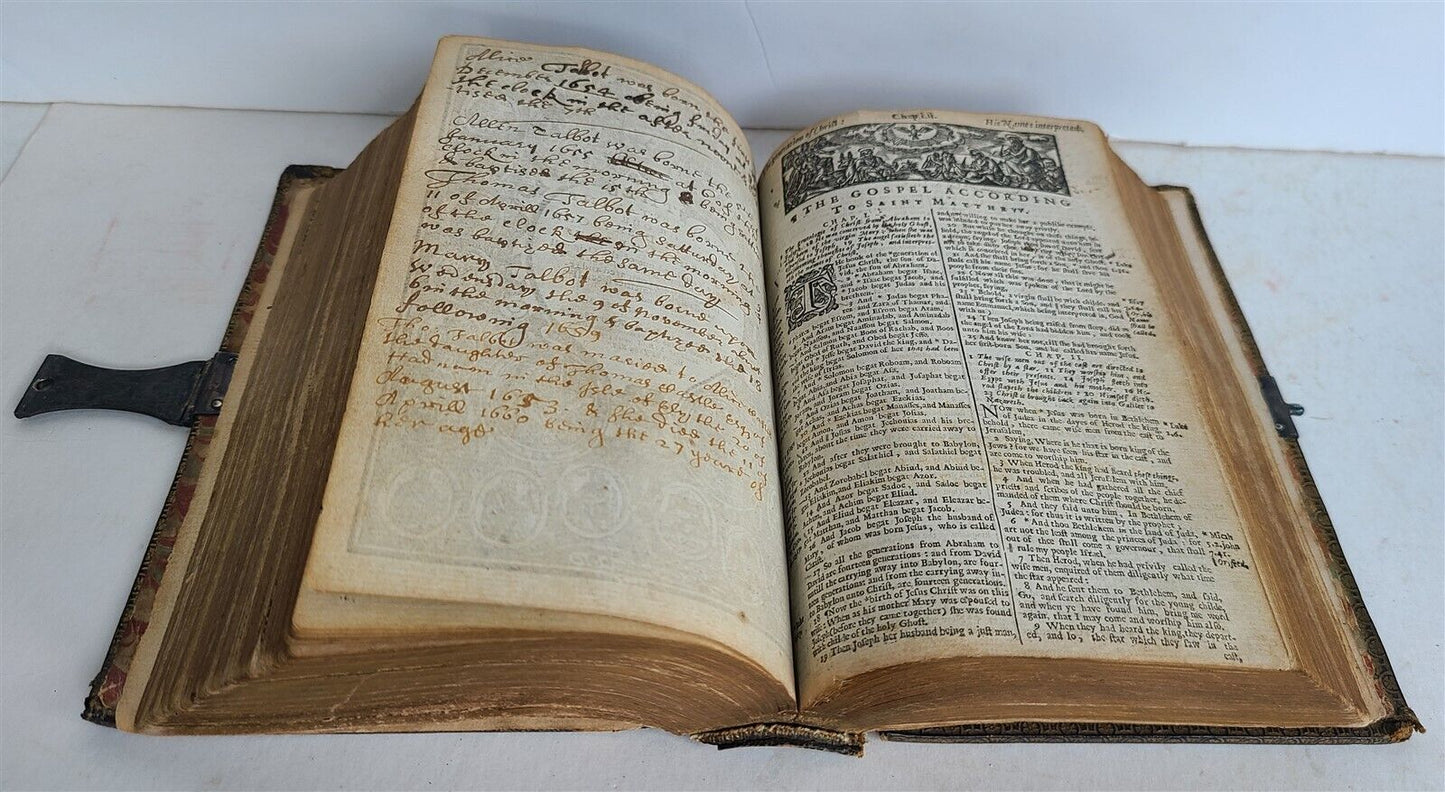 Talbot was born the
December 1654 being
the clock in the after noon
tised the 7th
Allin Talbot was borne the
January 1655
Clock in the morning
& baptised the 15th
Thomas Talbot was borne the
11 of Aprill 1657 being Satturday
of the clock in the morning &
was baptized the same day
Mary Talbot was borne upon
Wedensday the 9 of november
in the morning & baptized the 18
following 1659
Talbot was maried to Allin
the daughter of Thomas Castle
Hadnum in the Isle of Ely the 20 of
August 1653 & she died the 11
Aprill 1660 being the 27 yeare of
her age
Chap. i. ii.
His Name interpreted.
THE GOSPEL ACCORDING
TO SAINT MATTHEW.
CHAP. I.
of Christ from Abraham to
conceived by the holy Ghost,
Mary when she was
to Joseph. 19 The Angel satisfieth the
of Joseph, and interpre-
Christ.
The book of the generation of
Jesus Christ, the son of Da-
vid, the son of Abraham.
2 Abraham begat Isaac,
and Isaac begat Jacob, and
Jacob begat Judas and his
brethren.
3 And Judas begat Pha-
res and Zara of Thamar, and
Phares begat Esrom, and Esrom begat Aram;
4 And Aram begat Aminadab, and Aminadab
begat Naasson, and Naasson begat Salmon,
5 And Salmon begat Boos of Rachab, and Boos
begat Obed of Ruth, and Obed begat Jesse,
6 And Jesse begat David the king, and Da-
vid the king begat Solomon of her that had been
7 And Solomon begat Roboam, and Roboam
begat Abia, and Abia begat Asa,
8 And Asa begat Josaphat, and Josaphat begat
Joram, and Joram begat Ozias.
9 And Ozias begat Joatham, and Joatham be-
gat Achaz, and Achaz begat Ezekias,
10 And Ezekias begat Manasses, and Manasses
begat Amon, and Amon begat Josias.
11 And Josias begat Jechonias and his bre-
thren, about the time they were carried away to
Babylon.
12 And after they were brought to Babylon,
Jechonias begat Salathiel, and Salathiel begat
13 And Zorobabel begat Abiud, and Abiud be-
gat Eliakim, and Eliakim begat Azor.
14 And Azor begat Sadoc, and Sadoc begat
Achim, and Achim begat Eliud.
15 And Eliud begat Eleazar, and Eleazar be-
gat Matthan, and Matthan begat Jacob.
16 And Jacob begat Joseph the husband of
Mary, of whom was born Jesus, who is called
Christ.
17 So all the generations from Abraham to
David are fourteen generations: and from David
until the carrying away into Babylon, are four-
teen generations: and from the carrying away in-
to Babylon unto Christ, are fourteen generations.
18 Now the birth of Jesus Christ was on this
wise: When as his mother Mary was espoused to
Joseph (before they came together) she was found
with childe of the holy Ghost.
19 Then Joseph her husband being a just man,
and not willing to make her a publick example,
was minded to put her away privily.
20 But while he thought on these things,
22 Now all this was done, that it might be
fulfilled which was spoken of the Lord by the
prophet, saying,
23 Behold, a virgin shall be with childe, and
shall bring forth a Son, and they shall call his
name Emmanuel, which being interpreted is, God
with us.)
24 Then Joseph being raised from sleep, did as
the angel of the Lord had bidden him,
unto him his wife:
25 And knew her not, till she had brought forth
her first-born Son, and he called his name Jesus.
CHAP. II.
1 The wise men out of the east are directed to
Christ by a star. 11 They worship him, and
offer their presents. 14 Joseph fleeth into
Egypt with Jesus and his mother. 16 He-
rod slayeth the children: 20 Himself dieth.
23 Christ is brought back again into Galilee to
Nazareth.
Now when Jesus was born in Bethlehem
of Judea in the dayes of Herod the king,
behold, there came wise men from the east to
Jerusalem,
2 Saying, Where is he that is born king of the
Jews? for we have seen his star in the east, and
are come to worship him.
3 When Herod the king had heard these things,
he was troubled, and all Jerusalem with him.
4 And when he had gathered all the chief
priests and scribes of the people together, he de-
manded of them where Christ should be born.
5 And they said unto him, In Bethlehem of
Judea: for thus it is written by the prophet;
6 And thou Bethlehem in the land of Juda,
art not the least among the princes of Juda: for
out of thee shall come a governour, that shall
rule my people Israel.
7 Then Herod, when he had privily called the
wise men, enquired of them diligently what time
the star appeared:
8 And he sent them to Bethlehem, and said,
Go, and search diligently for the young childe,
and when ye have found him, bring me word
again, that I may come and worship him also.
9 When they had heard the king, they depart-
ed, and lo, the star which they saw in the
east,
* Luke
2.6.
* Micah
5.2. john